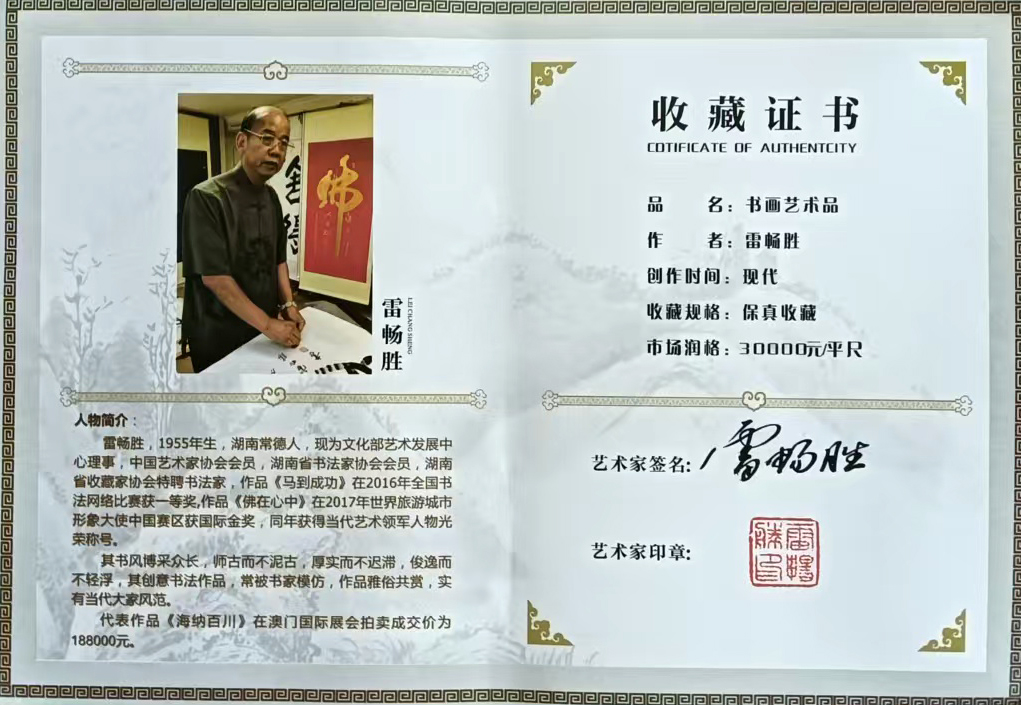 雷畅胜
LEI CHANG SHENG
人物简介：
雷畅胜，1955年生，湖南常德人，现为文化部艺术发展中
心理事，中国艺术家协会会员，湖南省书法家协会会员，湖南
省收藏家协会特聘书法家，作品《马到成功》在2016年全国书
法网络比赛获一等奖,作品《佛在心中》在2017年世界旅游城市
形象大使中国赛区获国际金奖，同年获得当代艺术领军人物光
荣称号。
其书风博采众长，师古而不泥古，厚实而不迟滞，俊逸而
不轻浮，其创意书法作品，常被书家模仿，作品雅俗共赏，实
有当代大家风范。
代表作品《海纳百川》在澳门国际展会拍卖成交价为
188000元。
佛
收藏证书
COTIFICATE OF AUTHENTCITY
品 名：书画艺术品
作 者：雷畅胜
创作时间：现代
收藏规格：保真收藏
市场润格：30000元/平尺
艺术家签名: 雷畅胜
艺术家印章:
雷畅胜印